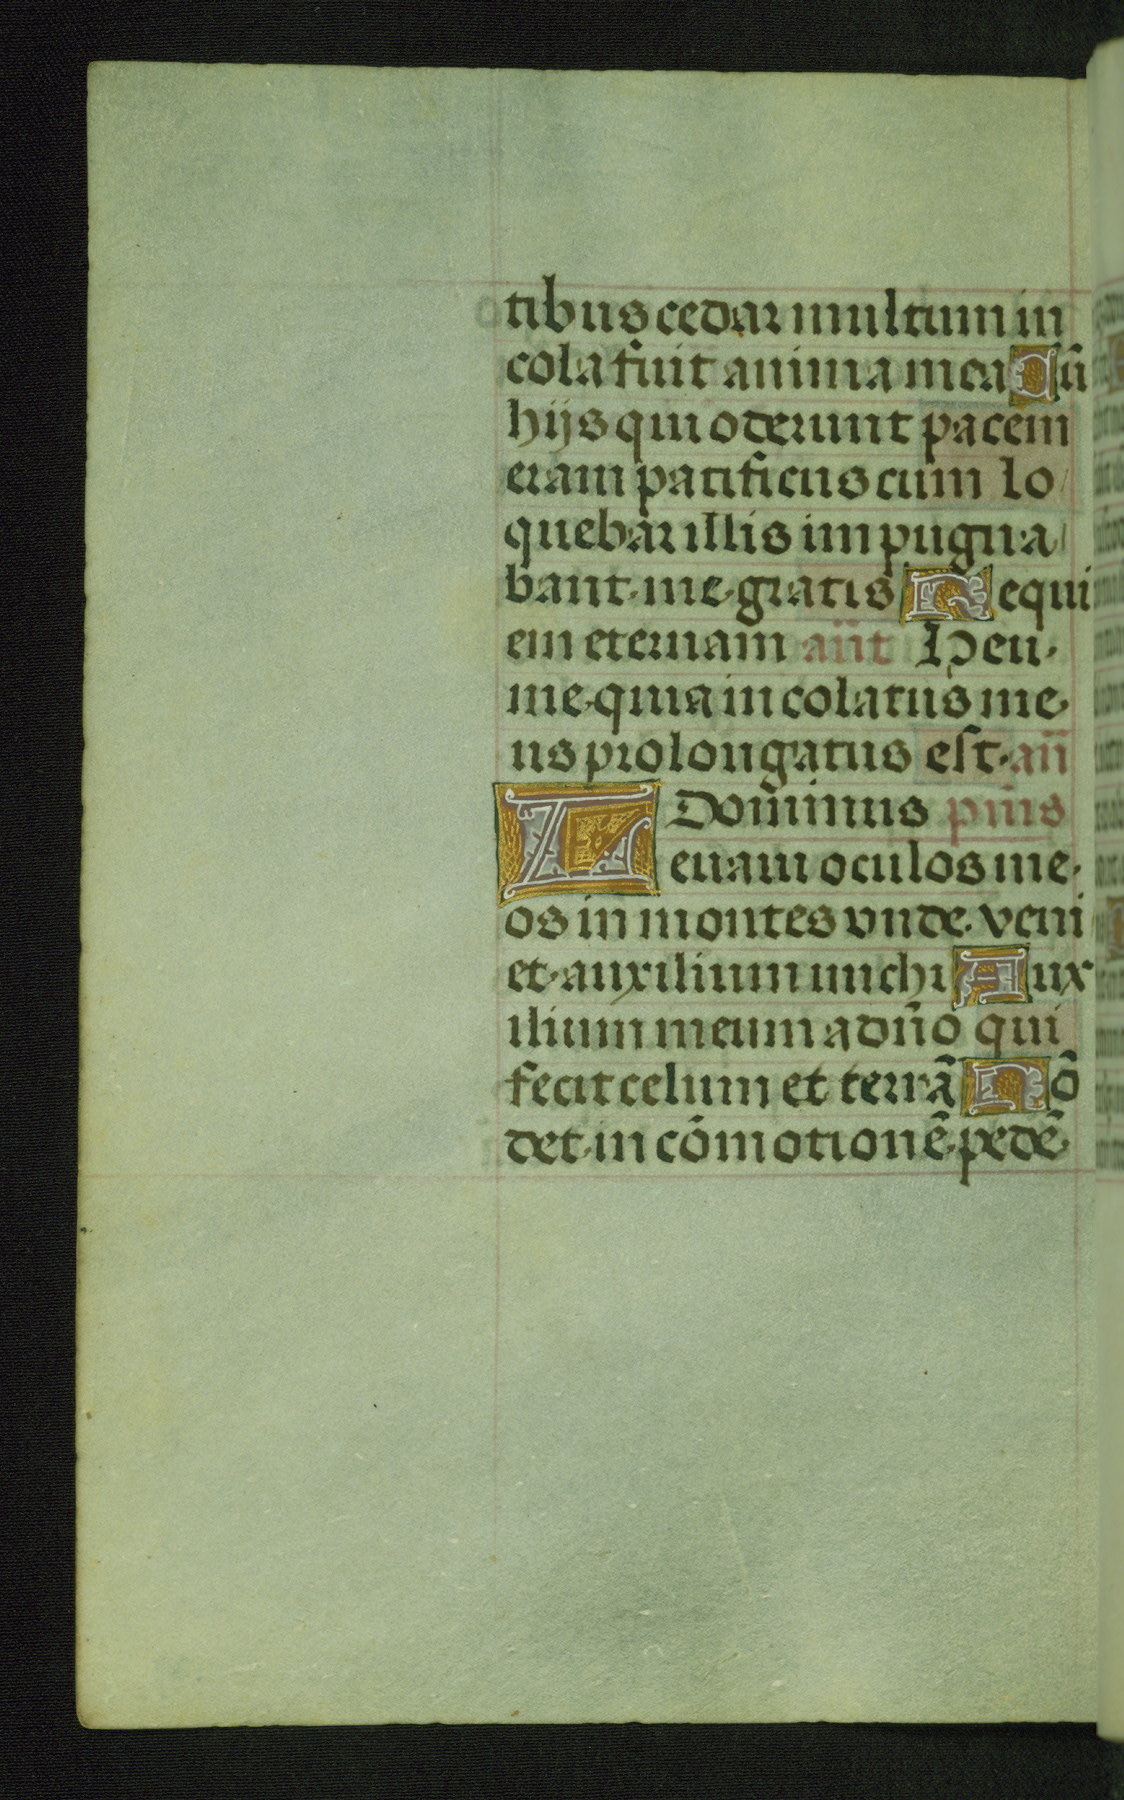 tibus cedar multum in
cola fuit anima mea Cū
hijs qui oderunt pacem
eram pacificus cum lo
quebar illis impugna
bant me gratis Requi
em eternam añt Heu
me quia incolatus me
us prolongatus est añ
Dom̄inus pm̄s
Leuam oculos me
os in montes vnde veni
et auxilium michi Aux
ilium meum a dn̄o qui
fecit celum et terrā Nō
det in cōmotionē pedē